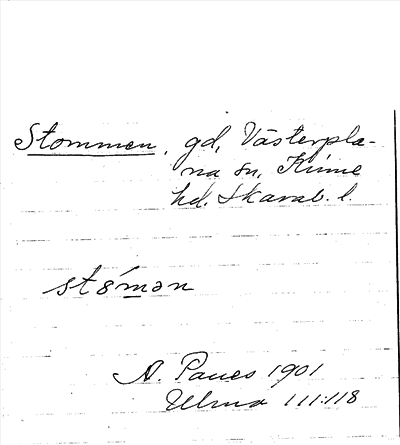 Stommen, gd, Västerpla-
na sn, Kinne
hd. Skarab. l.
stómən
A. Paues 1901
Ulma 111:118